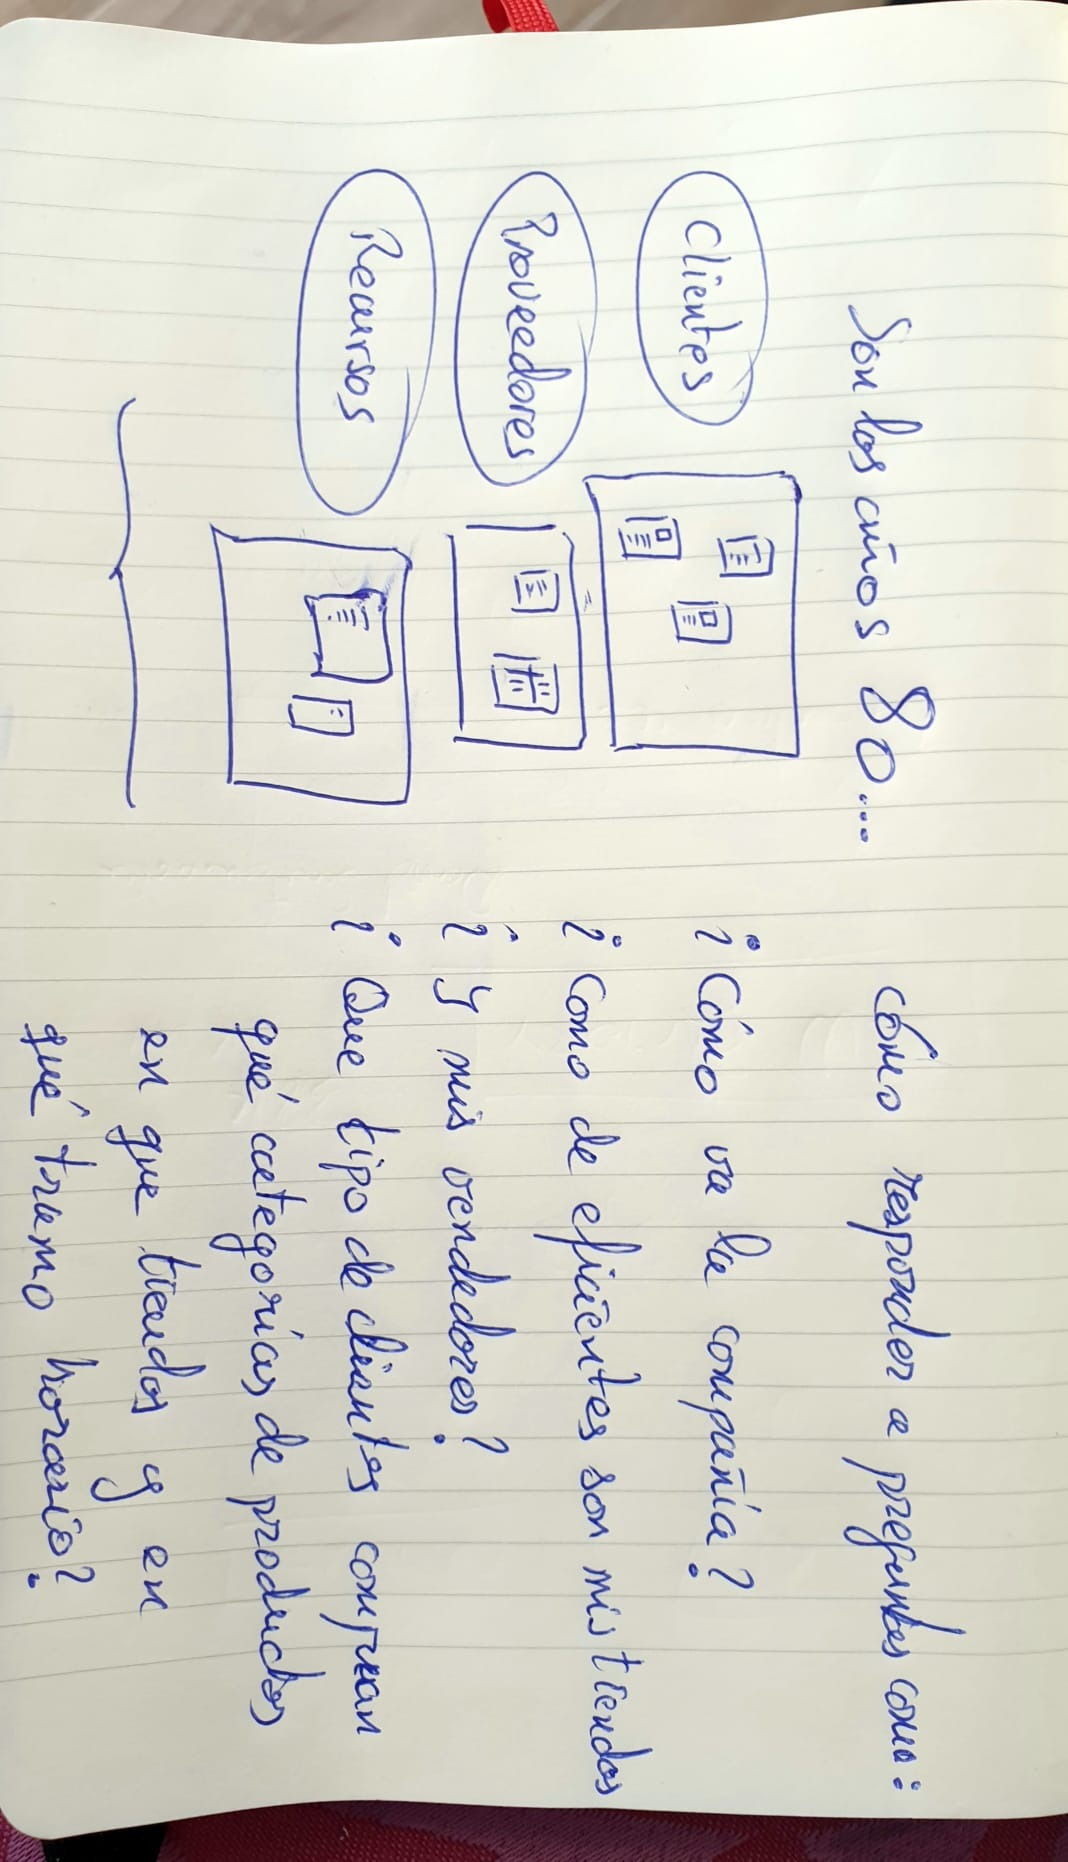 Son los años 80...
Clientes
Proveedores
Recursos
Cómo responder a preguntas como:
¿Cómo va la compañía?
¿Como de eficientes son mis tiendas
¿Y mis vendedores?
¿Que tipo de clientes compran
qué categorías de productos
en que tiendas y en
qué tramo horario?